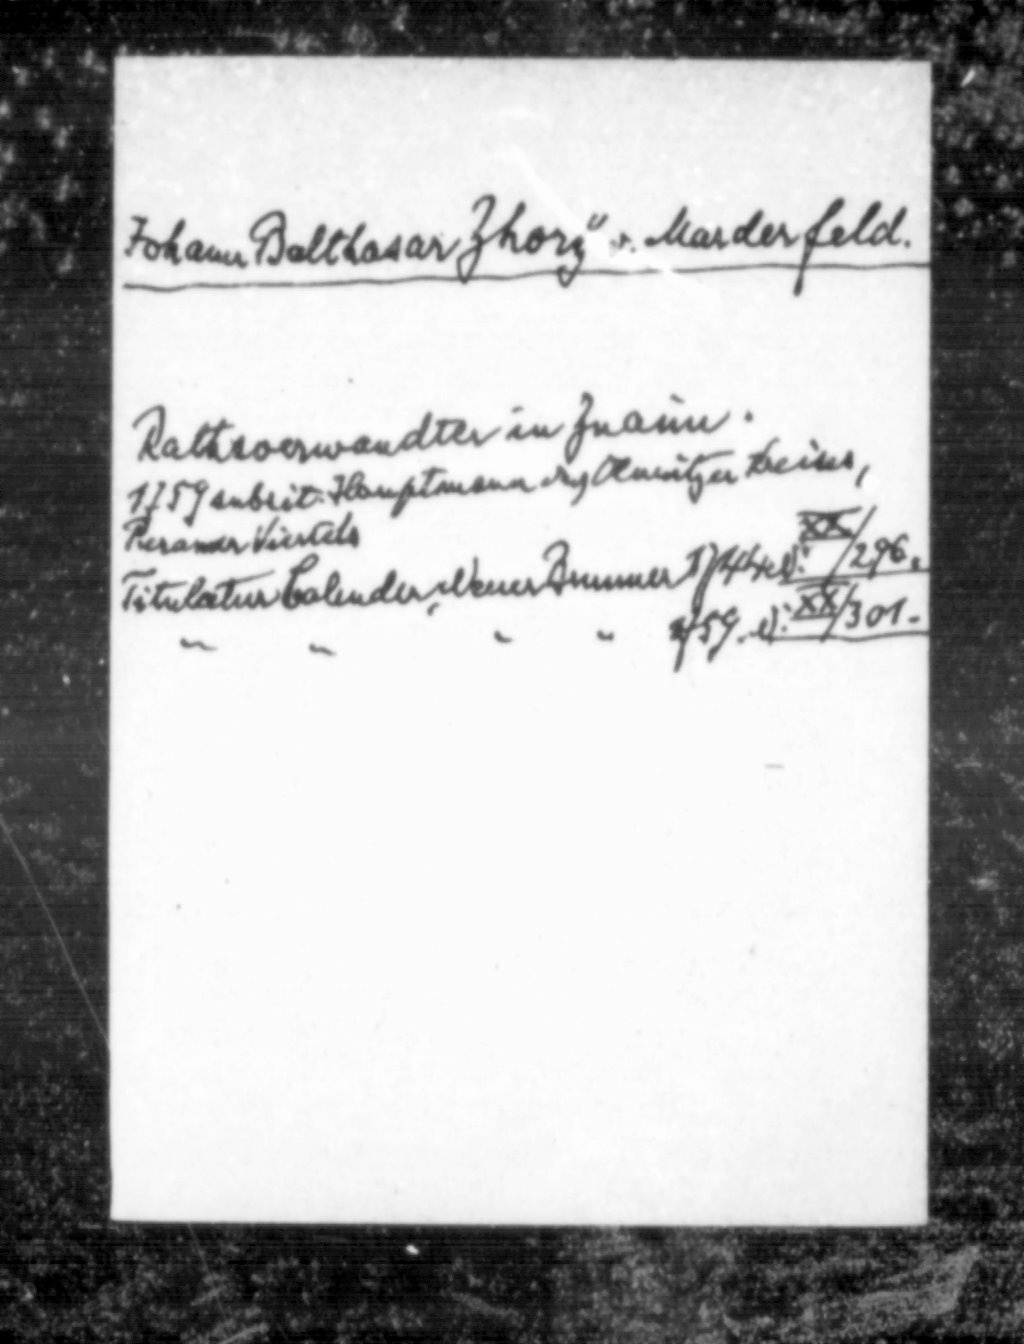 Johann Balthasar Zhorÿ v. Marderfeld.
Rathsverwandter in Znaim.
1759 subsit. Hauptmann des Olmützer Kreises,
Prerauer Viertels
Titulatur Calender, Neuer Brünner 1744. N: XX/296.
" " " " 1759. N: XX/301.